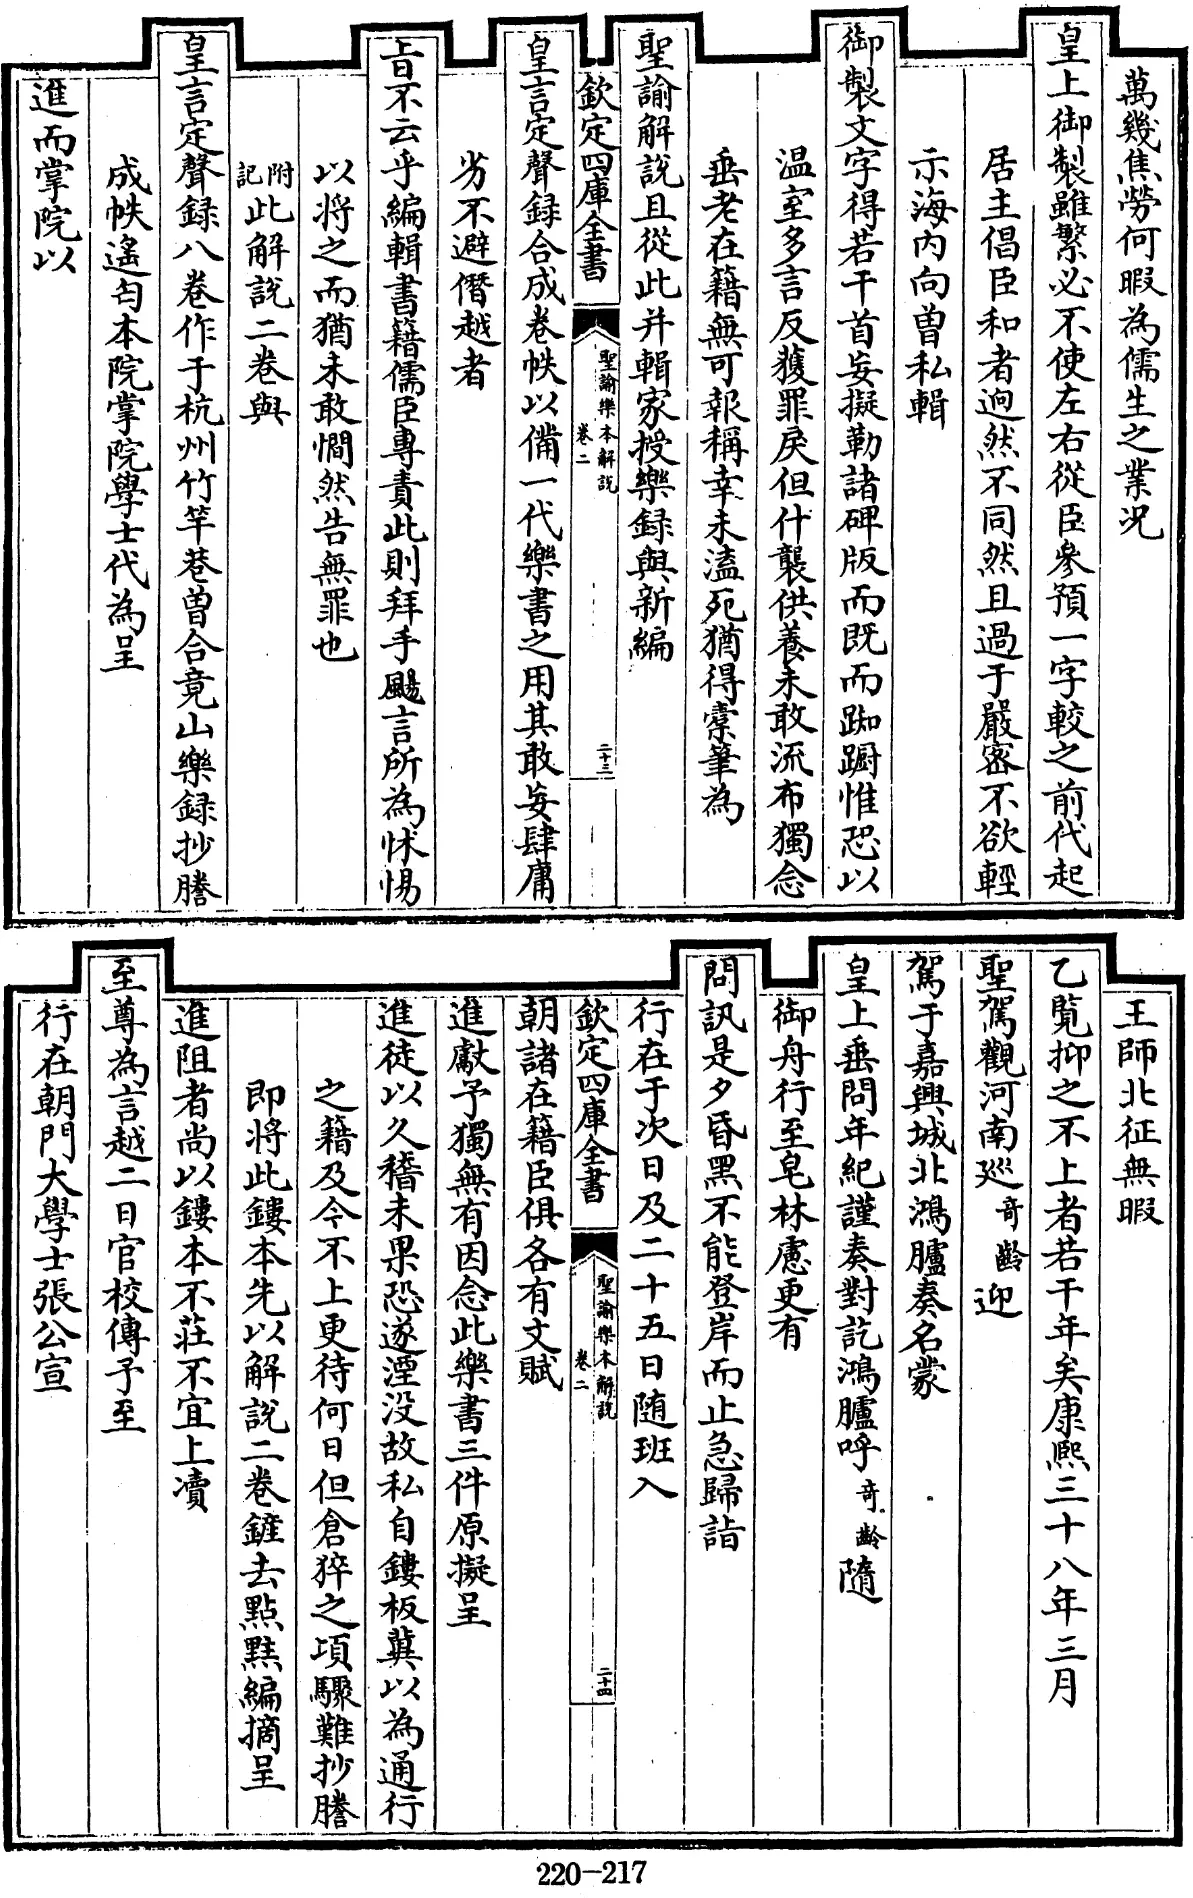 萬幾焦勞何暇為儒生之業况
皇上御製雖繁必不使左右從臣參預一字較之前代起
居主倡臣和者逈然不同然且過于嚴密不欲輕
示海内向曽私輯
御製文字得若干首妄擬勒諸碑版而既而踟蹰惟恐以
温室多言反獲罪戾但什襲供養未敢流布獨念
垂老在籍無可報稱幸未溘死猶得橐筆為
聖諭解說且從此并輯家授樂録與新編
欽定四庫全書
聖諭樂本解說
卷二
二十三
皇言定聲録合成卷帙以備一代樂書之用其敢妄肆庸
劣不避僭越者
上旨不云乎編輯書籍儒臣專責此則拜手颺言所為怵惕
以將之而猶未敢憪然告無罪也
附記此解說二卷與
皇言定聲録八卷作于杭州竹竿巷曽合竟山樂録抄謄
成帙遙匄本院掌院學士代為呈
進而掌院以
王師北征無暇
乙覧抑之不上者若干年矣康熙三十八年三月
聖駕觀河南巡奇齡迎
駕于嘉興城北鴻臚奏名蒙
皇上垂問年紀謹奏對訖鴻臚呼奇齡隨
御舟行至皂林慮更有
問訊是夕昏黑不能登岸而止急歸詣
行在于次日及二十五日随班入
欽定四庫全書
聖諭樂本解說
卷二
二十四
朝諸在籍臣俱各有文賦
進獻予獨無有因念此樂書三件原擬呈
進徒以久稽未果恐遂湮没故私自鏤板冀以為通行
之籍及今不上更待何日但倉猝之項驟難抄謄
即將此鏤本先以解說二卷鏟去點㸃編摘呈
進阻者尚以鏤本不莊不宜上瀆
至尊為言越二日官校傳予至
行在朝門大學士張公宣
220-217